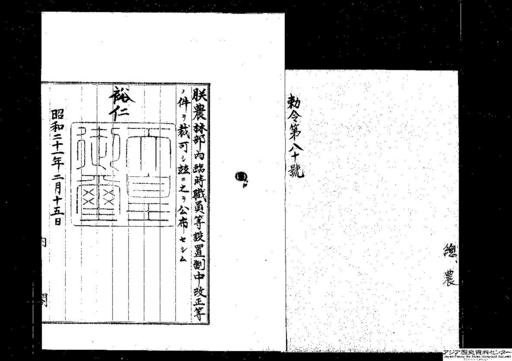 勅令第八十號
總農
朕農林部內臨時職員等設置制中改正等
ノ件ヲ裁可シ玆ニ之ヲ公布セシム
裕仁
天皇御璽
昭和二十一年二月十五日
內閣
アジア歴史資料センター